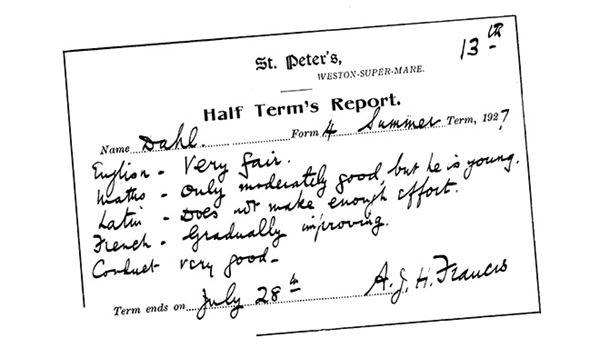 St. Peter's,
13th
WESTON-SUPER-MARE.
Half Term's Report.
Name Dahl. Form 4 Summer Term, 1927
English - Very fair.
Maths - Only moderately good, but he is young.
Latin - Does not make enough effort.
French - Gradually improving.
Conduct very good -
Term ends on July 28th A. J. H. Francis